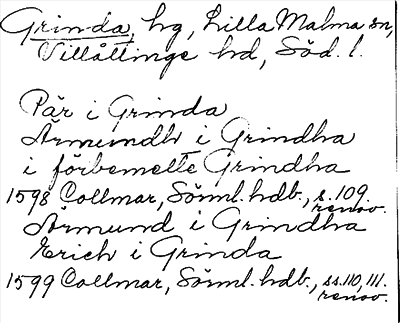 Grinda, hg, Lilla Malma sn,
Villåttinge hd, Söd. l.
Pär i Grinda
Ärmundh i Grindha
i förbemelte Grindha
1598 Collmar, Sörml. hdb., s. 109.
renov.
Ärmund i Grindha
Erich i Grinda
1599 Collmar, Sörml. hdb., ss. 110, 111.
renov.